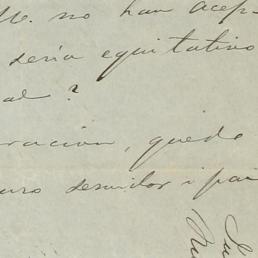 Ue. no han acep-
sería equitativo
al?
ración, quedo
uro servidor i pai
Su